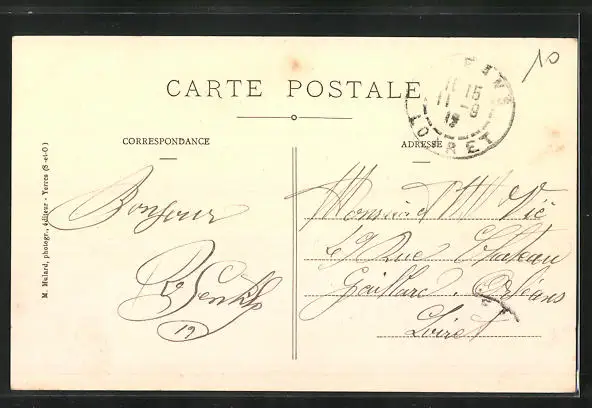 10
CARTE POSTALE
CORRESPONDANCE
ADRESSE
11 15
11 - 8
LOIRET
M. Mulard, photogr., éditeur - Yerres (S-et-O)
Bonjour
19
Monsieur Vié
Rue Chateau
Gaillard. Orléans
Loiret